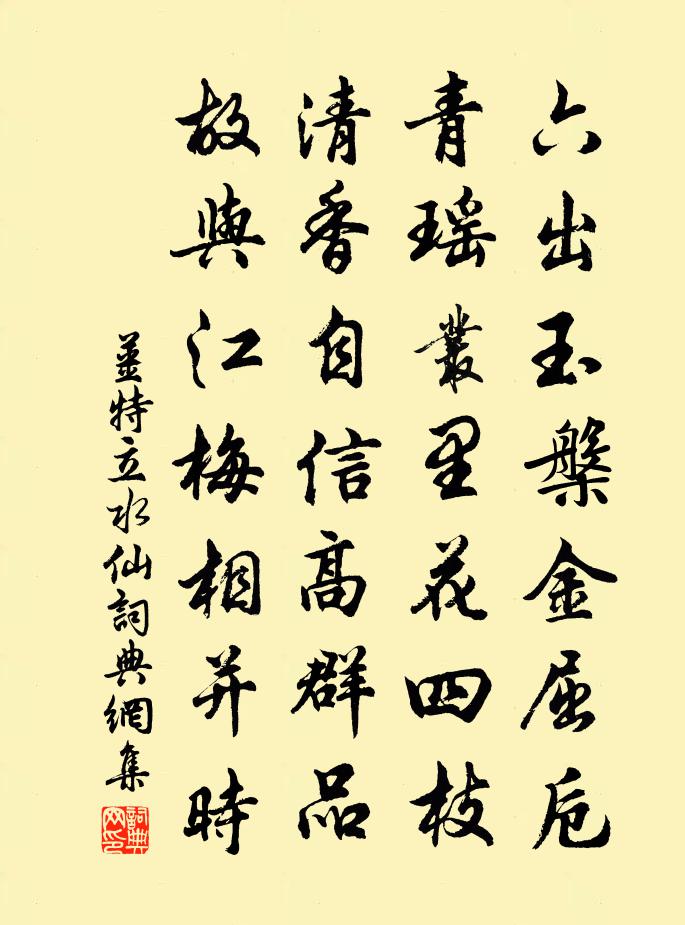 六出玉槃金屈卮
青瑶叢里花四枝
清香自信高群品
故與江梅相并時
姜特立水仙詞典網集
詞典网印